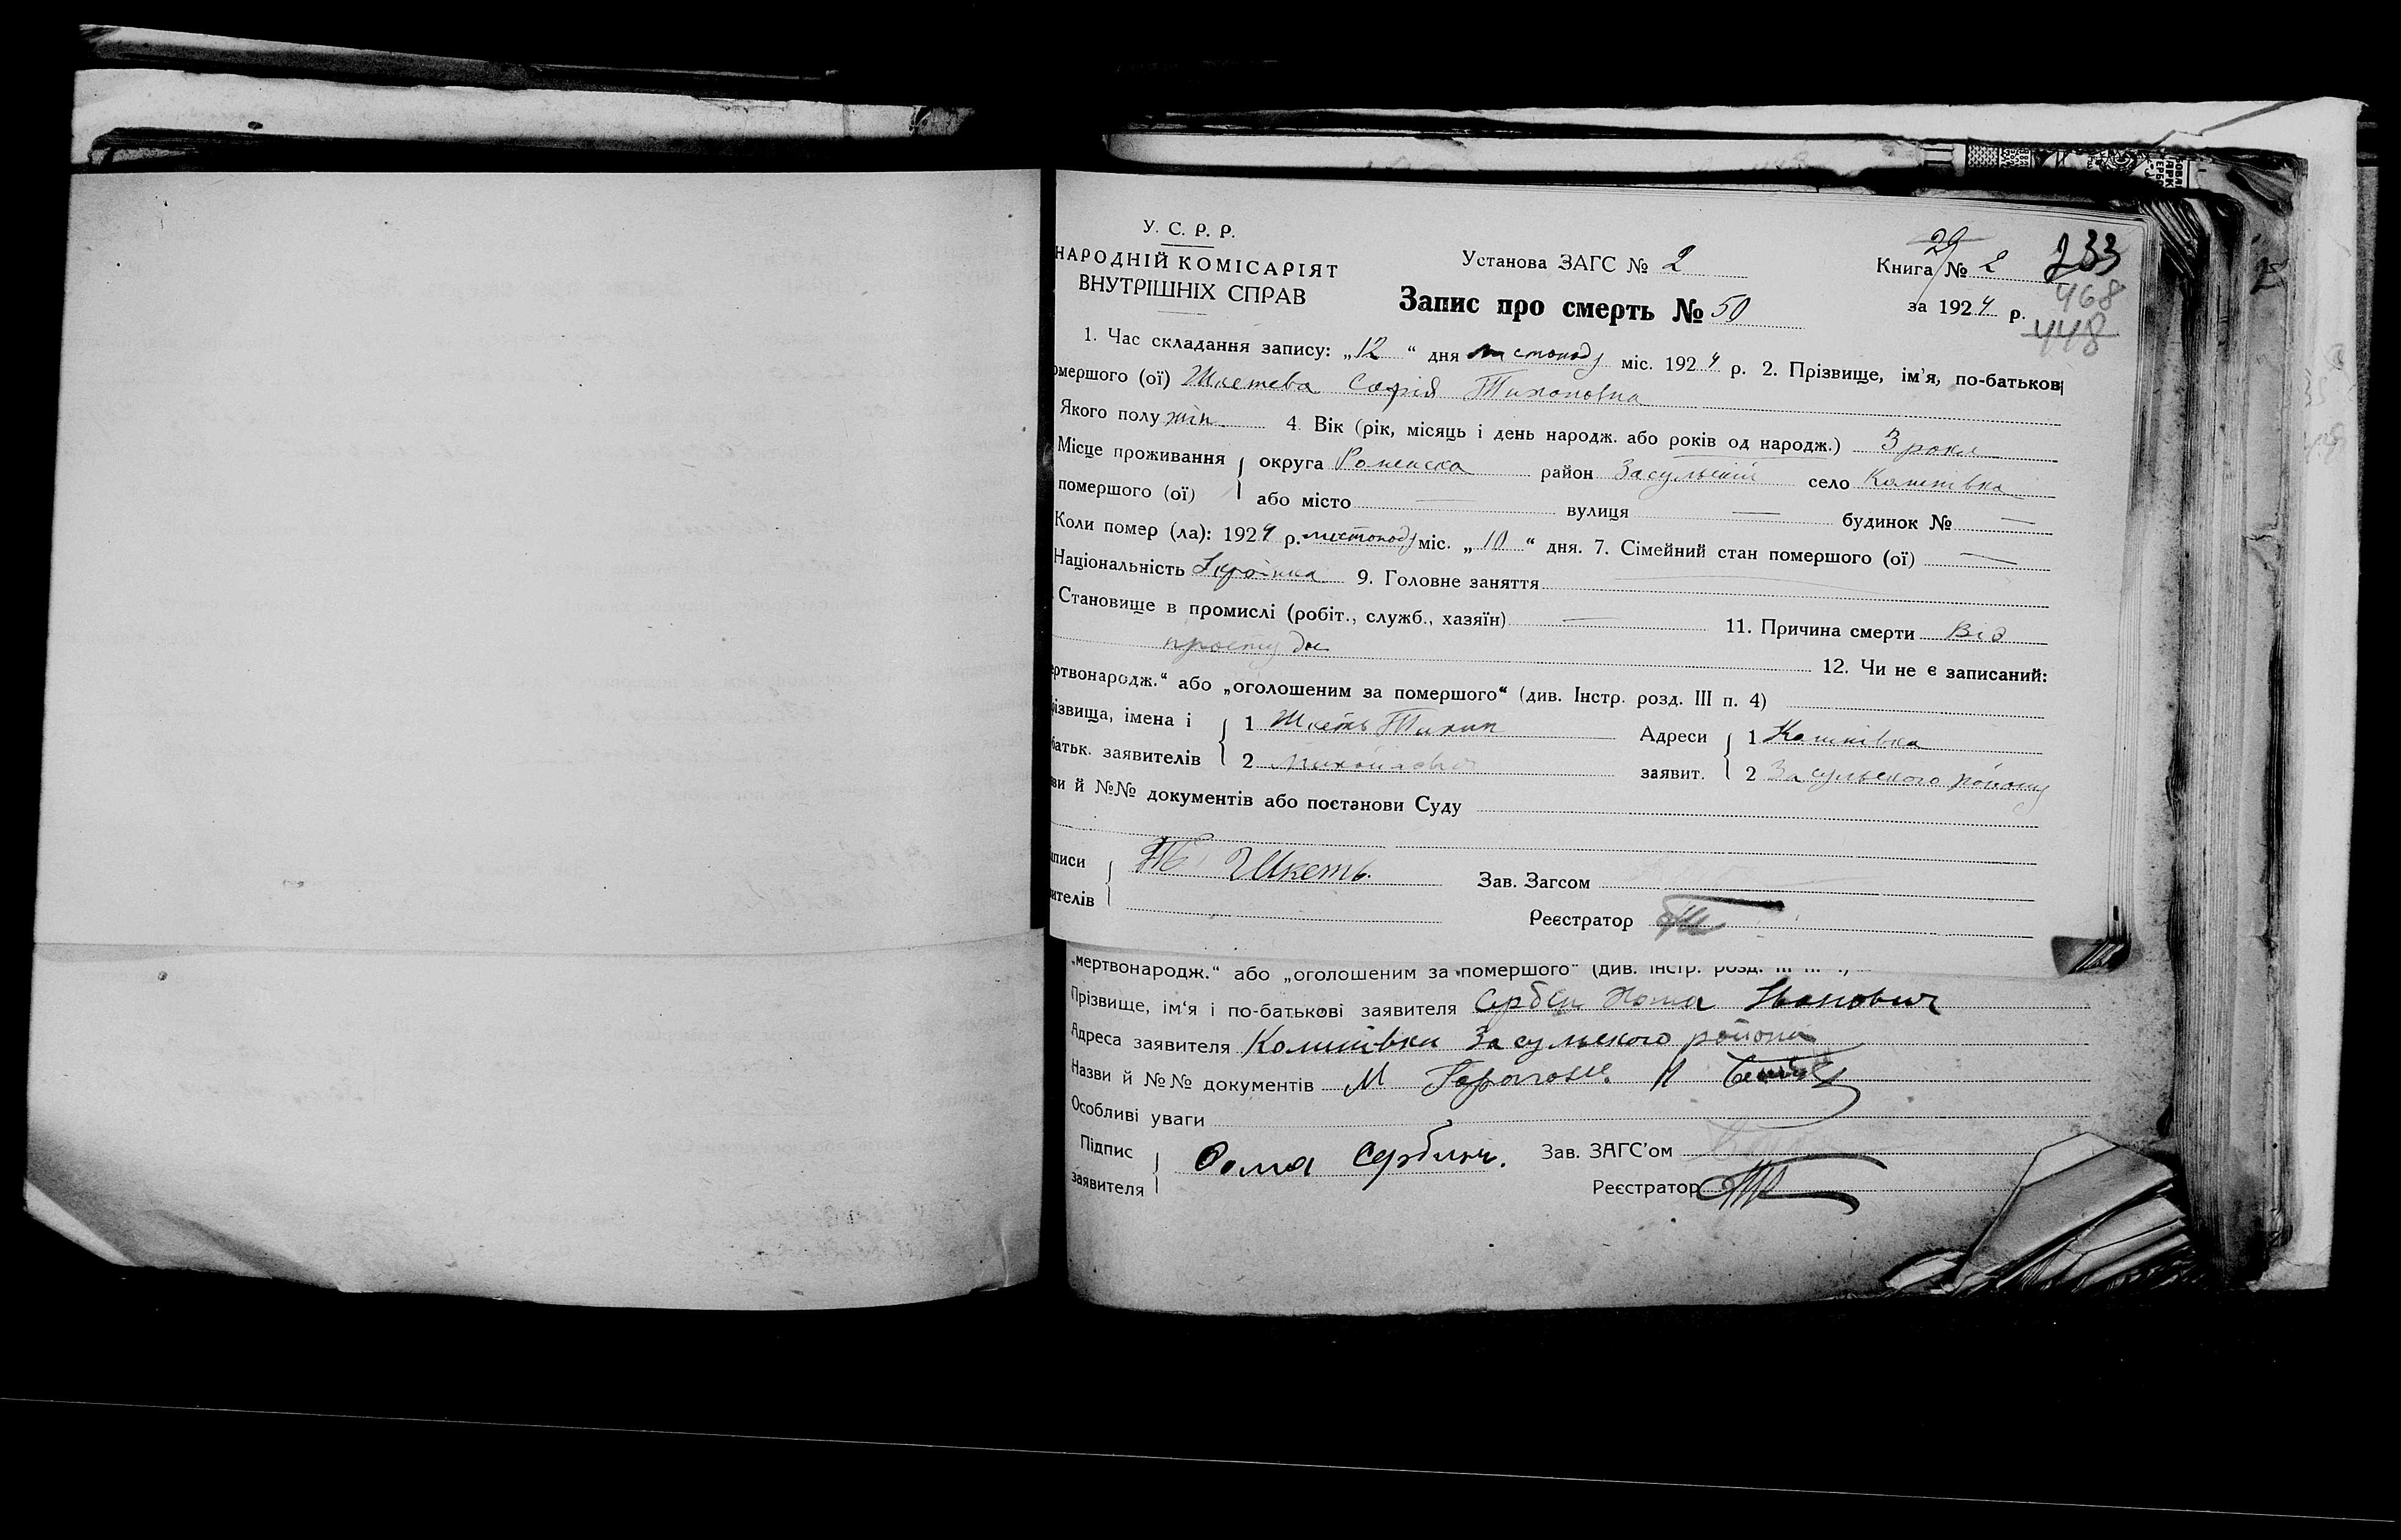 У. С. Р. Р.
НАРОДНІЙ КОМІСАРІЯТ
ВНУТРІШНІХ СПРАВ
Установа ЗАГС № 2
29
Книга № 2
233
468
448
Запис про смерть № 50
за 1924 р.
1. Час складання запису: „12“ дня листопаду міс. 1924 р. 2. Прізвище, ім’я, по-батькові
омершого (ої) Шкетева Софія Тихоновна
Якого полу жін. 4. Вік (рік, місяць і день народж. або років од народж.) 3 роки
Місце проживання округа Роменска район Засульский село Коишівка
помершого (ої) або місто — вулиця — будинок № —
Коли помер (ла): 1924 р. листопаду міс. „10“ дня. 7. Сімейний стан помершого (ої) —
Національність 9. Головне заняття
Становище в промислі (робіт., служб., хазяїн) — 11. Причина смерти Від
простуди 12. Чи не є записаний:
ертвонародж.“ або „оголошеним за помершого“ (див. Інстр. розд. III п. 4)
ізвища, імена і 1 Шкеть Тихин Адреси 1
батьк. заявителів 2 заявит. 2 Засульського району
ви й №№ документів або постанови Суду
писи Шкеть. Зав. Загсом
ителів Реєстратор
„мертвонародж.“ або „оголошеним за помершого“ (див. Інстр. розд.
Прізвище, ім‘я і по-батькові заявителя Сербин Хома Іванович
Адреса заявителя Засульского району
Назви й №№ документів
Особливі уваги
Підпис Хома Сербин. Зав. ЗАГС’ом
заявителя Реєстратор